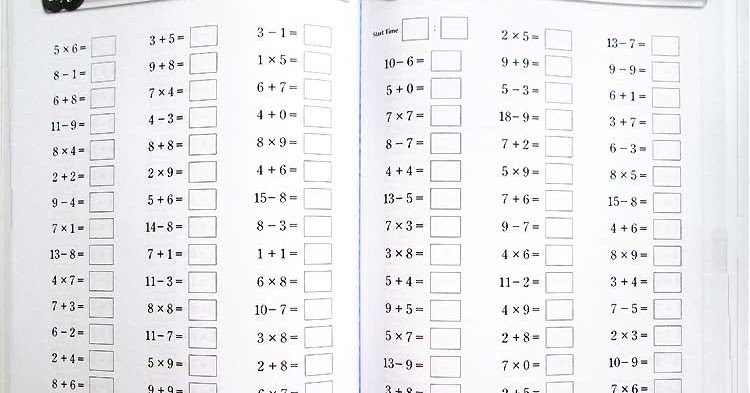 5×6=
8−1=
6+8=
11−9=
8×4=
2+2=
9−4=
7×1=
13−8=
4×7=
7+3=
6−2=
2+4=
8+6=
3+5=
9+8=
7×4=
4−3=
8+8=
2×9=
5+6=
14−8=
7+1=
11−3=
8×8=
11−7=
5×9=
9+9=
3−1=
1×5=
6+7=
4+0=
8×9=
4+6=
15−8=
8−3=
1+1=
6×8=
10−7=
3×8=
2+8=
Start Time :
10−6=
5+0=
7×7=
8−7=
4+4=
13−5=
7×3=
3×8=
5+4=
9+5=
5×7=
13−9=
2×5=
9+9=
5−3=
18−9=
7+2=
5×9=
7+6=
9−7=
4×6=
11−2=
4×9=
2+8=
7×0=
13−7=
9−9=
6+1=
3+7=
6−3=
8×5=
15−8=
4+6=
8×9=
3+4=
7−5=
2×3=
10−9=
7×6=